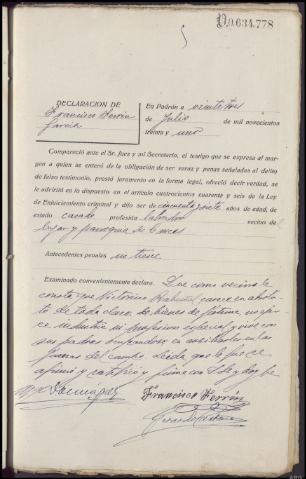 D0.634.778
5
DECLARACION DE
Francisco Ferrín
García
En Padrón a veintetres
de Julio de mil novecientos
treinta y uno
Compareció ante el Sr. Juez y mi Secretario, el testigo que se expresa al mar-
gen a quien se enteró de la obligación de ser veraz y penas señaladas al delito
de falso testimonio, prestó juramento en la forma legal, ofreció decir verdad, se
le advirtió en lo dispuesto en el artículo cuatrocientos cuarenta y seis de la Ley
de Enjuiciamiento criminal y dijo ser de cincuenta y siete años de edad, de
estado casado profesión labrador vecino de
lugar y parroquia de
Antecedentes penales no tiene
Examinado convenientemente declara: Que como vecino le
consta que Victorino carece en absolu
to de toda clase de bienes de fortuna, no
ejerce industria ni profesion especial y vive con
sus padres en auxiliarles en las
faenas del campo
afirmó y ratificó y firma con S.Sª y doy fe
Domínguez
Francisco Ferrín